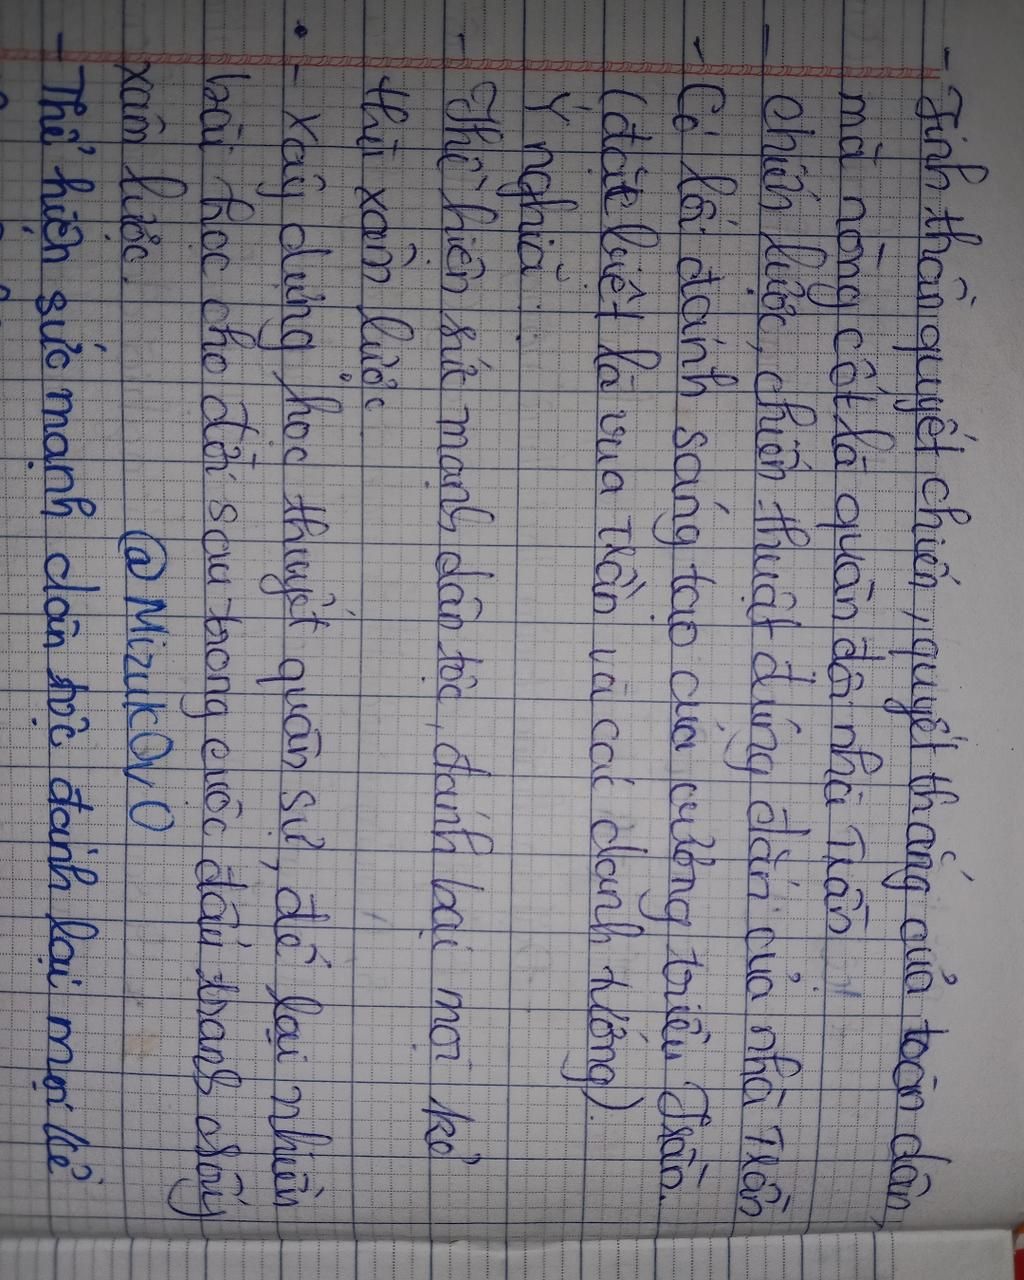 - Tinh thần quyết chiến, quyết thắng của toàn dân,
mà nòng cốt là quân đội nhà Trần
- chiến lược, chiến thuật đúng đắn của nhà Trần
- Có lối đánh sáng tạo của vương triều Trần.
(đặc biệt là vua Trần và các danh tướng).
Ý nghĩa :
- Thể hiện sức mạnh dân tộc, đánh bại mọi kẻ
thù xâm lược
- Xây dựng học thuyết quân sự, để lại nhiều
bài học cho đời sau trong cuộc đấu tranh chống
xâm lược.
@MizukOvO
- Thể hiện sức mạnh dân tộc đánh lại mọi kẻ